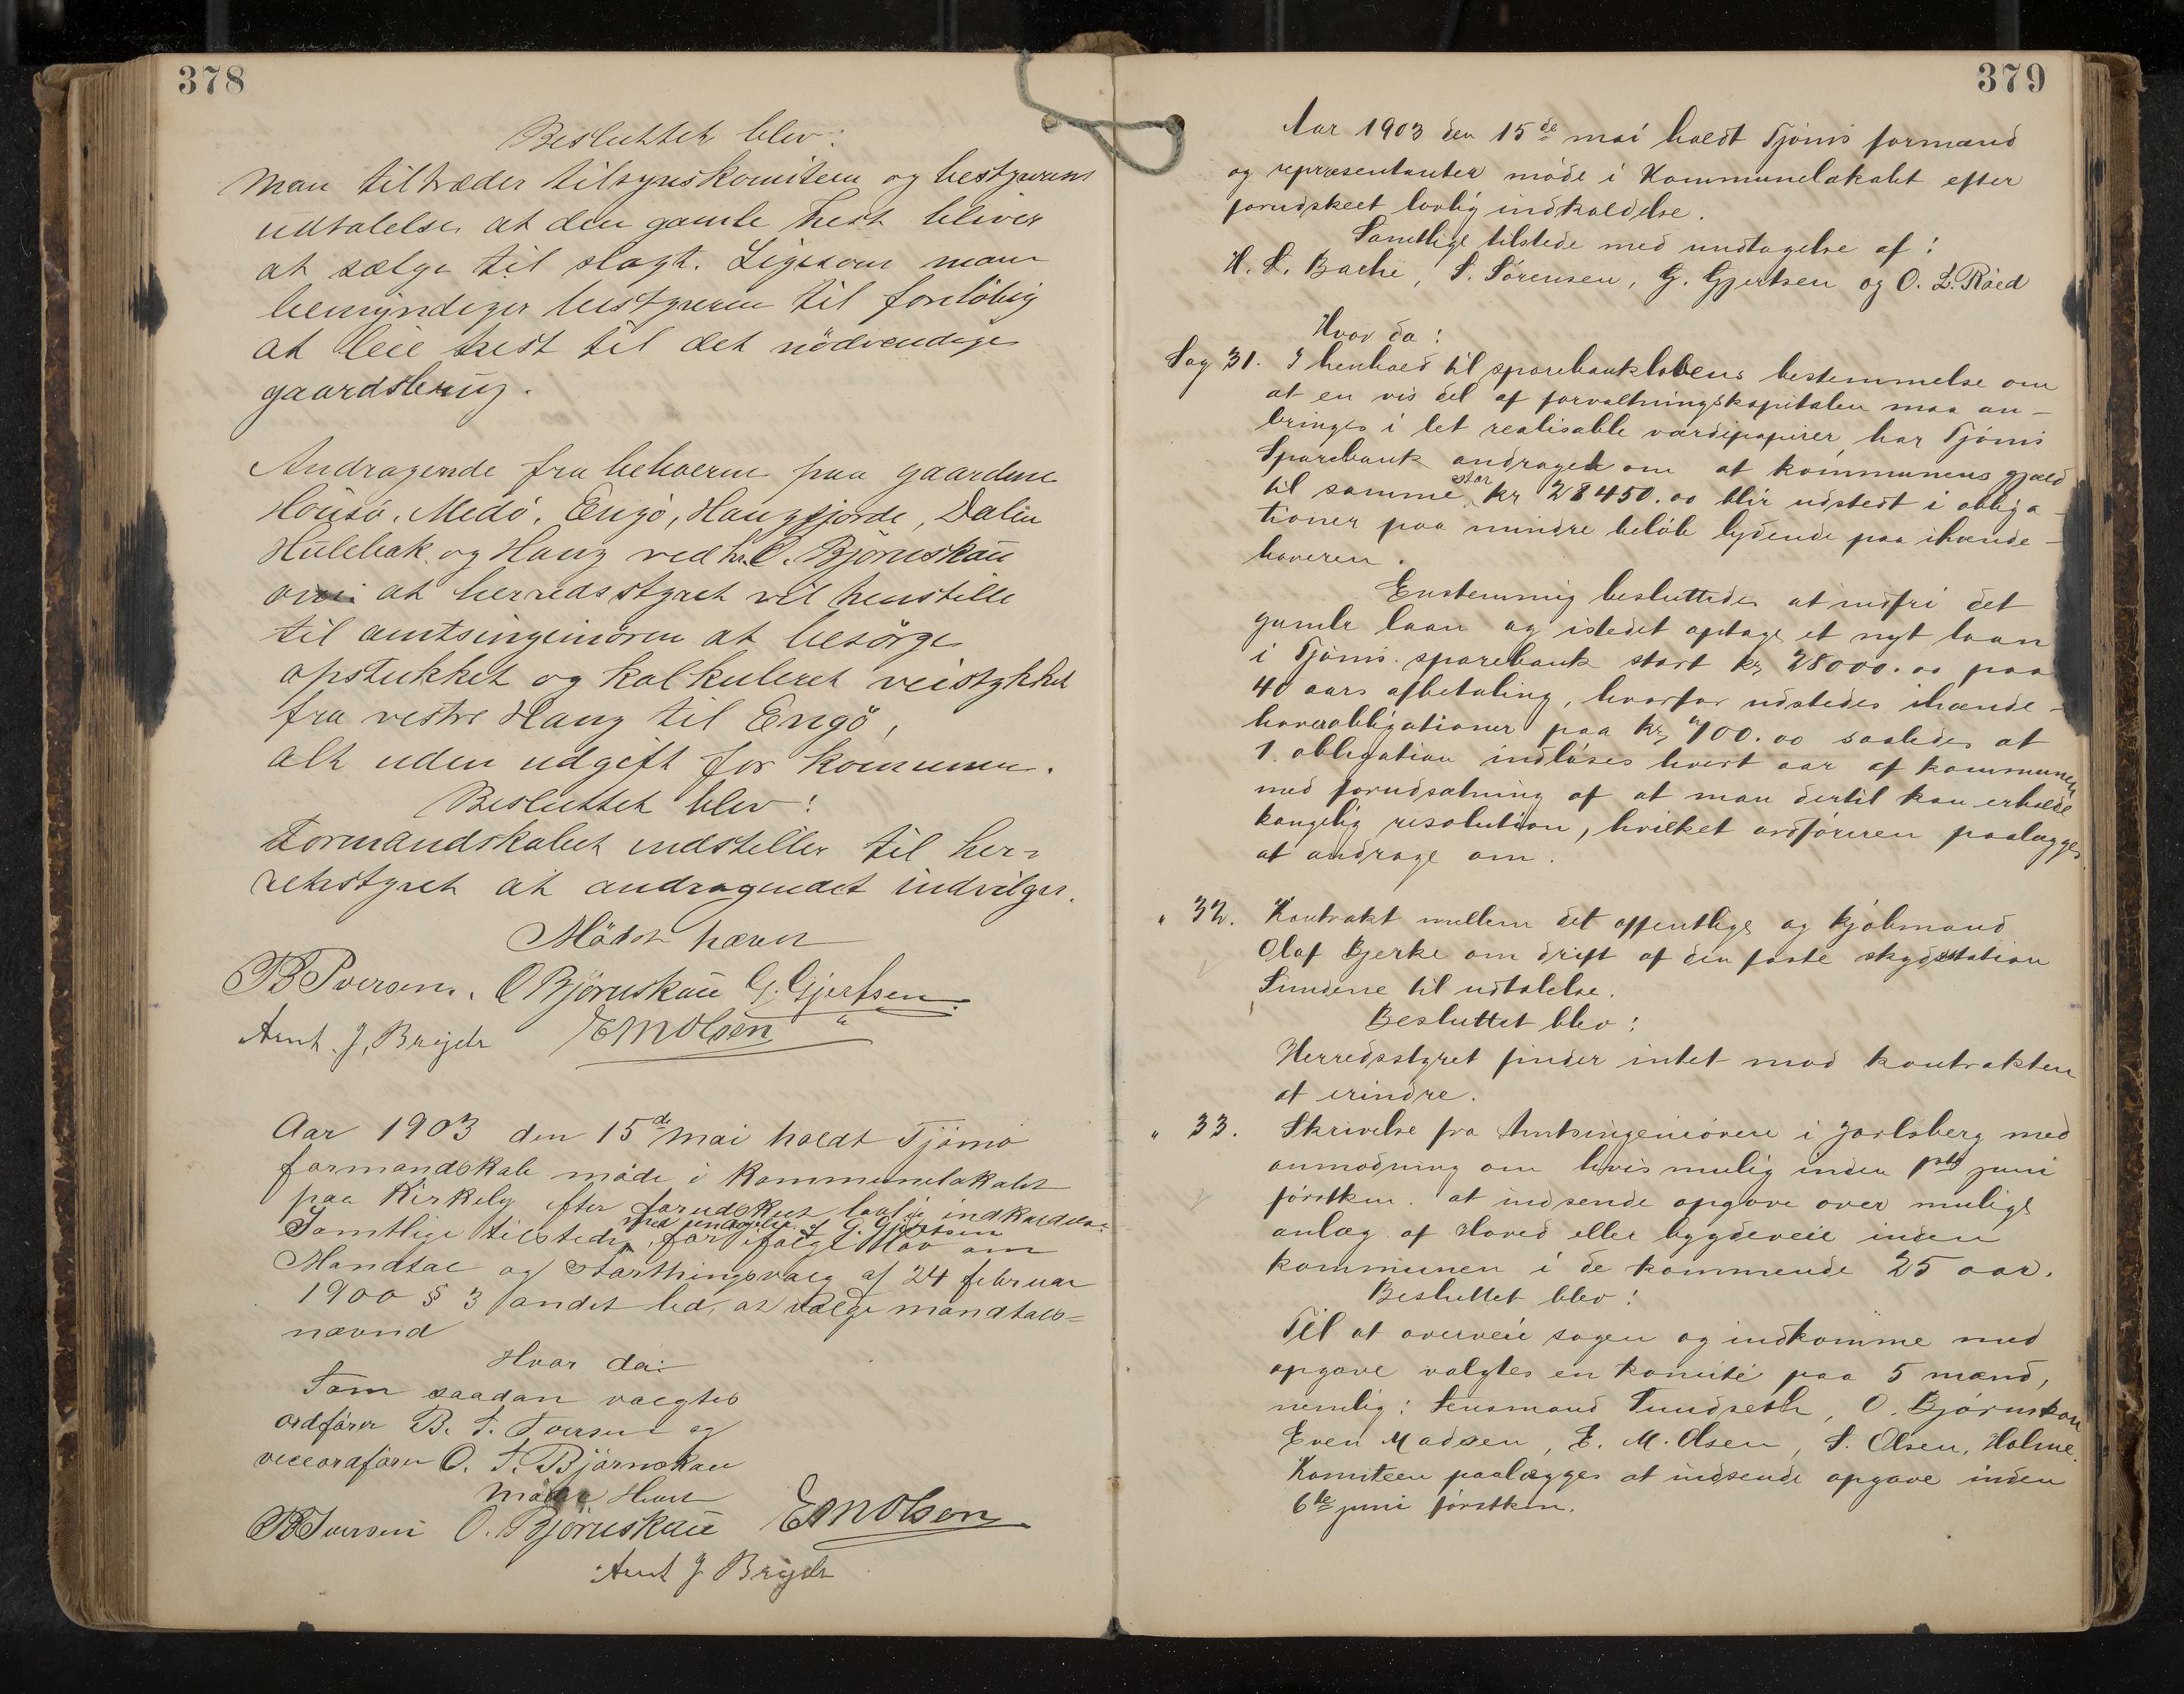 378
Besluttet blev:
Man tiltræder tilsynskomiteen og bestyrerens
udtalelse at den gamle hest bliver
at sælge til slagt. Ligesom man
bemyndiger bestyreren til foreløbig
at leie hest til det nödvendige
gaardsbrug.
Andragende fra beboerne paa gaardene
Houso, Medö, Engö, Haugfjorde, Dalen
Hulebak og Haug ved hr. O. Björnskau
om at herredsstyret vil henstille
til amtsingeniören at besörge
opstukket og kalkuleret veistykket
fra vestre Haug til Engö,
alt uden udgift for kommunen.
Besluttet blev:
Formandskabet indstiller til her-
redsstyret at andragendet indvilges.
Mödet hævet
B Iversen. O Björnskau G. Gjertsen
Arnt. J. Brejde E M Olsen
Aar 1903 den 15de mai holdt Tjömö
formandskab möde i Kommunelokalet
paa Kirkeby efter forudskeet lovlig indkaldelse.
Samtlige tilstede, med undtagelse af G. Gjertsen for ifølge Lov om
Mandtal og Storthingsvalg af 24 februar
1900 § 3 andet led, at vælge mandtals=
nævnd
Hvor da:
Som saadan valgtes
ordfører B. T. Iversen og
viceordfører O. T. Björnskau
mödet Hævet
B Iversen O. Björnskau E M Olsen
Arnt J Brejde
379
Aar 1903 den 15de mai holdt Tjömö formænd
og repræsentanter möde i Kommunelokalet efter
forudskeet lovlig indkaldelse.
Samtlige tilstede med undtagelse af:
H. L. Bache, S. Sörensen, G. Gjertsen og O. L. Röed
Hvor da:
Sag 31. I henhold til sparebanklovens bestemmelse om
at en vis del af forvaltningskapitalen maa an-
bringes i let realisable værdipapirer har Tjömö
Sparebank andraget om at kommunens gjæld
til samme stor kr 28450.00 blir udstedt i obliga-
tioner paa mindre beløb lydende paa ihænde-
haveren.
Enstemmig besluttedes at indfri det
gamle laan og istedet optage et nyt laan
i Tjömö sparebank stort kr. 28000.00 paa
40 aars afbetaling, hvorfor udstedes ihænde-
haverobligationer paa kr. 700.00 saaledes at
1. obligation indlöses hvert aar af kommunen
med forudsætning af at man dertil kan erholde
kongelig resolution, hvilket ordföreren paalægges
at andrage om.
" 32. Kontrakt mellem det offentlige og kjöbmand
Olaf Bjerke om drift af den faste skydsstation
Sundene til udtalelse.
Besluttet blev:
Herredsstyret finder intet mod kontrakten
at erindre.
" 33. Skrivelse fra Amtsingeniören i Jarlsberg med
anmodning om hvis mulig inden 1ste juni
förstkm. at indsende opgave over mulige
anlæg af Hoved eller bygdeveie inden
kommunen i de kommende 25 aar.
Besluttet blev:
Til at overveie sagen og indkomme med
opgave valgtes en komité paa 5 mænd,
nemlig: Lensmand Tundseth, O. Björnskau
Even Madsen, E. M. Olsen, S. Olsen, Holme.
Komiteen paalægges at indsende opgave inden
6te juni förstkm.